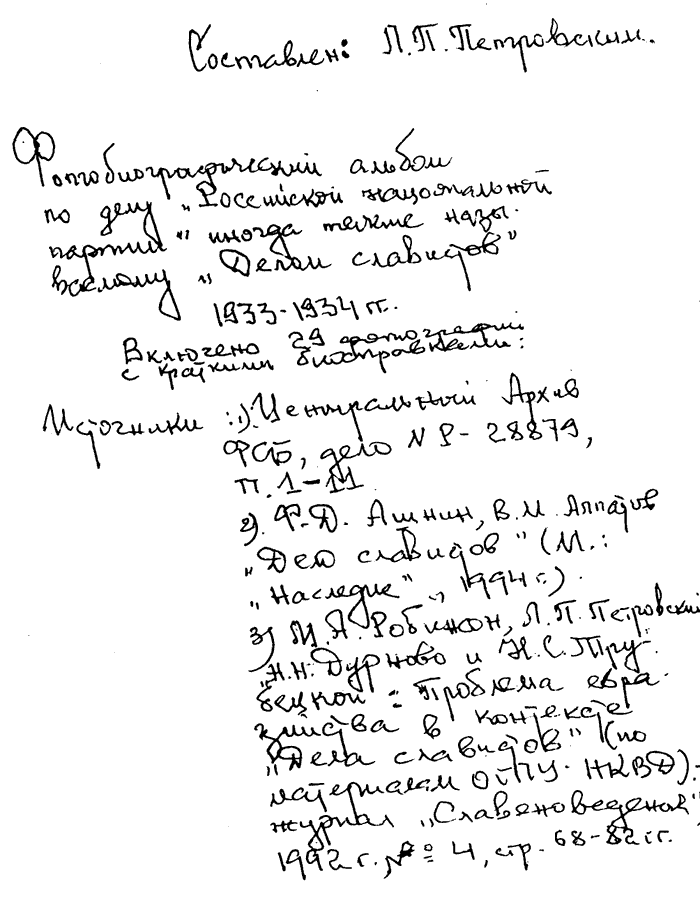 Составлен: Л.П.Петровским.
Фотобиографический альбом
по делу „Российской национальной
партии" иногда также назы-
ваемому „Делом славистов"
1933-1934 гг.
Включено 29 фотографий
с краткими биосправками:
Источники: 1). Центральный Архив
ФСБ, дело N Р-28879,
тт. 1-11
2). Ф.Д. Ашнин, В.М. Алпатов
„Дело славистов" (М.:
„Наследие", 1994 г.).
3) М.А. Робинсон, Л.П. Петровский
„Н.Н. Дурново и Н.С. Тру-
бецкой: Проблема евра-
зийства в контексте
„Дела славистов" (по
материалам ОГПУ-НКВД).-
журнал „Славяноведение",
1992 г., № 4, стр. 68-82 гг.